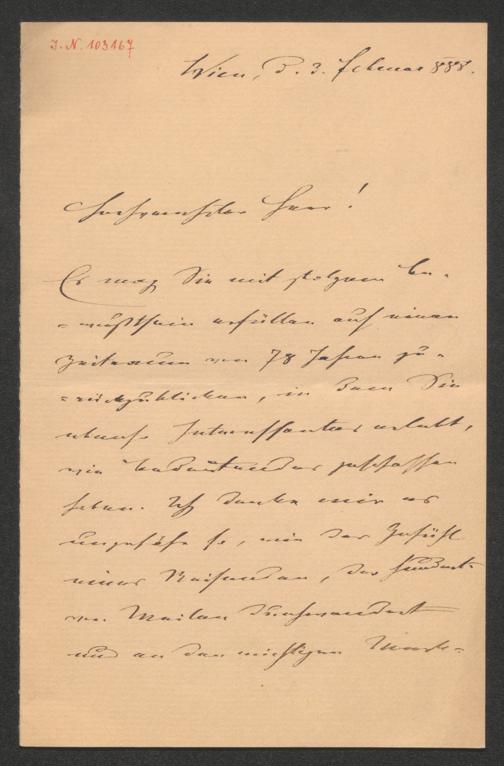 J. N. 103167
Wien, d. 3. Februar 888.
Hochverehrter Herr!
Es mag Sie mit stolzem Be-
=wußtsein erfüllen auf einen
Zeitraum von 78 Jahren zu-
=rückzublicken, in dem Sie
ebenso Interessantes erlebt,
wie Bedeutendes geschaffen
haben. Ich denke mir es
ungefähr so, wie das Gefühl
eines Reisenden, der hundert
von Meilen durchwandert
und an den wichtigen